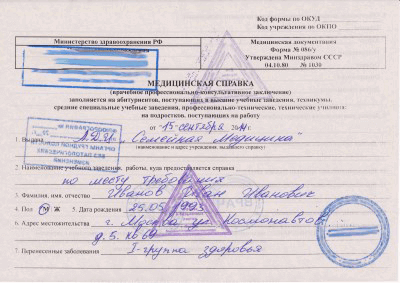 Код формы по ОКУД
Код учреждения по ОКПО
Министерство здравоохранения РФ
Медицинская документация
Форма № 086/у
Утверждена Минздравом СССР
04.10.80 № 1030
МЕДИЦИНСКАЯ СПРАВКА
(врачебное профессионально-консультативное заключение)
заполняется на абитуриентов, поступающих в высшие учебные заведения, техникумы,
средние специальные учебные заведения, профессионально-технические, технические училища;
на подростков, поступающих на работу
от 15 сентября г.
1. Выдана "Семейная Медицина"
(наименование и адрес учреждения, выдавшего справку)
2. Наименование учебного заведения, работы, куда предоставляется справка
по месту требования
3. Фамилия, имя, отчество Иванов Иван Иванович
4. Пол М Ж 5. Дата рождения 25.05.1993
6. Адрес местожительства г. Москва, ул. Космонавтов
д. 5, кв. 69
7. Перенесенные заболевания I-группа здоровья